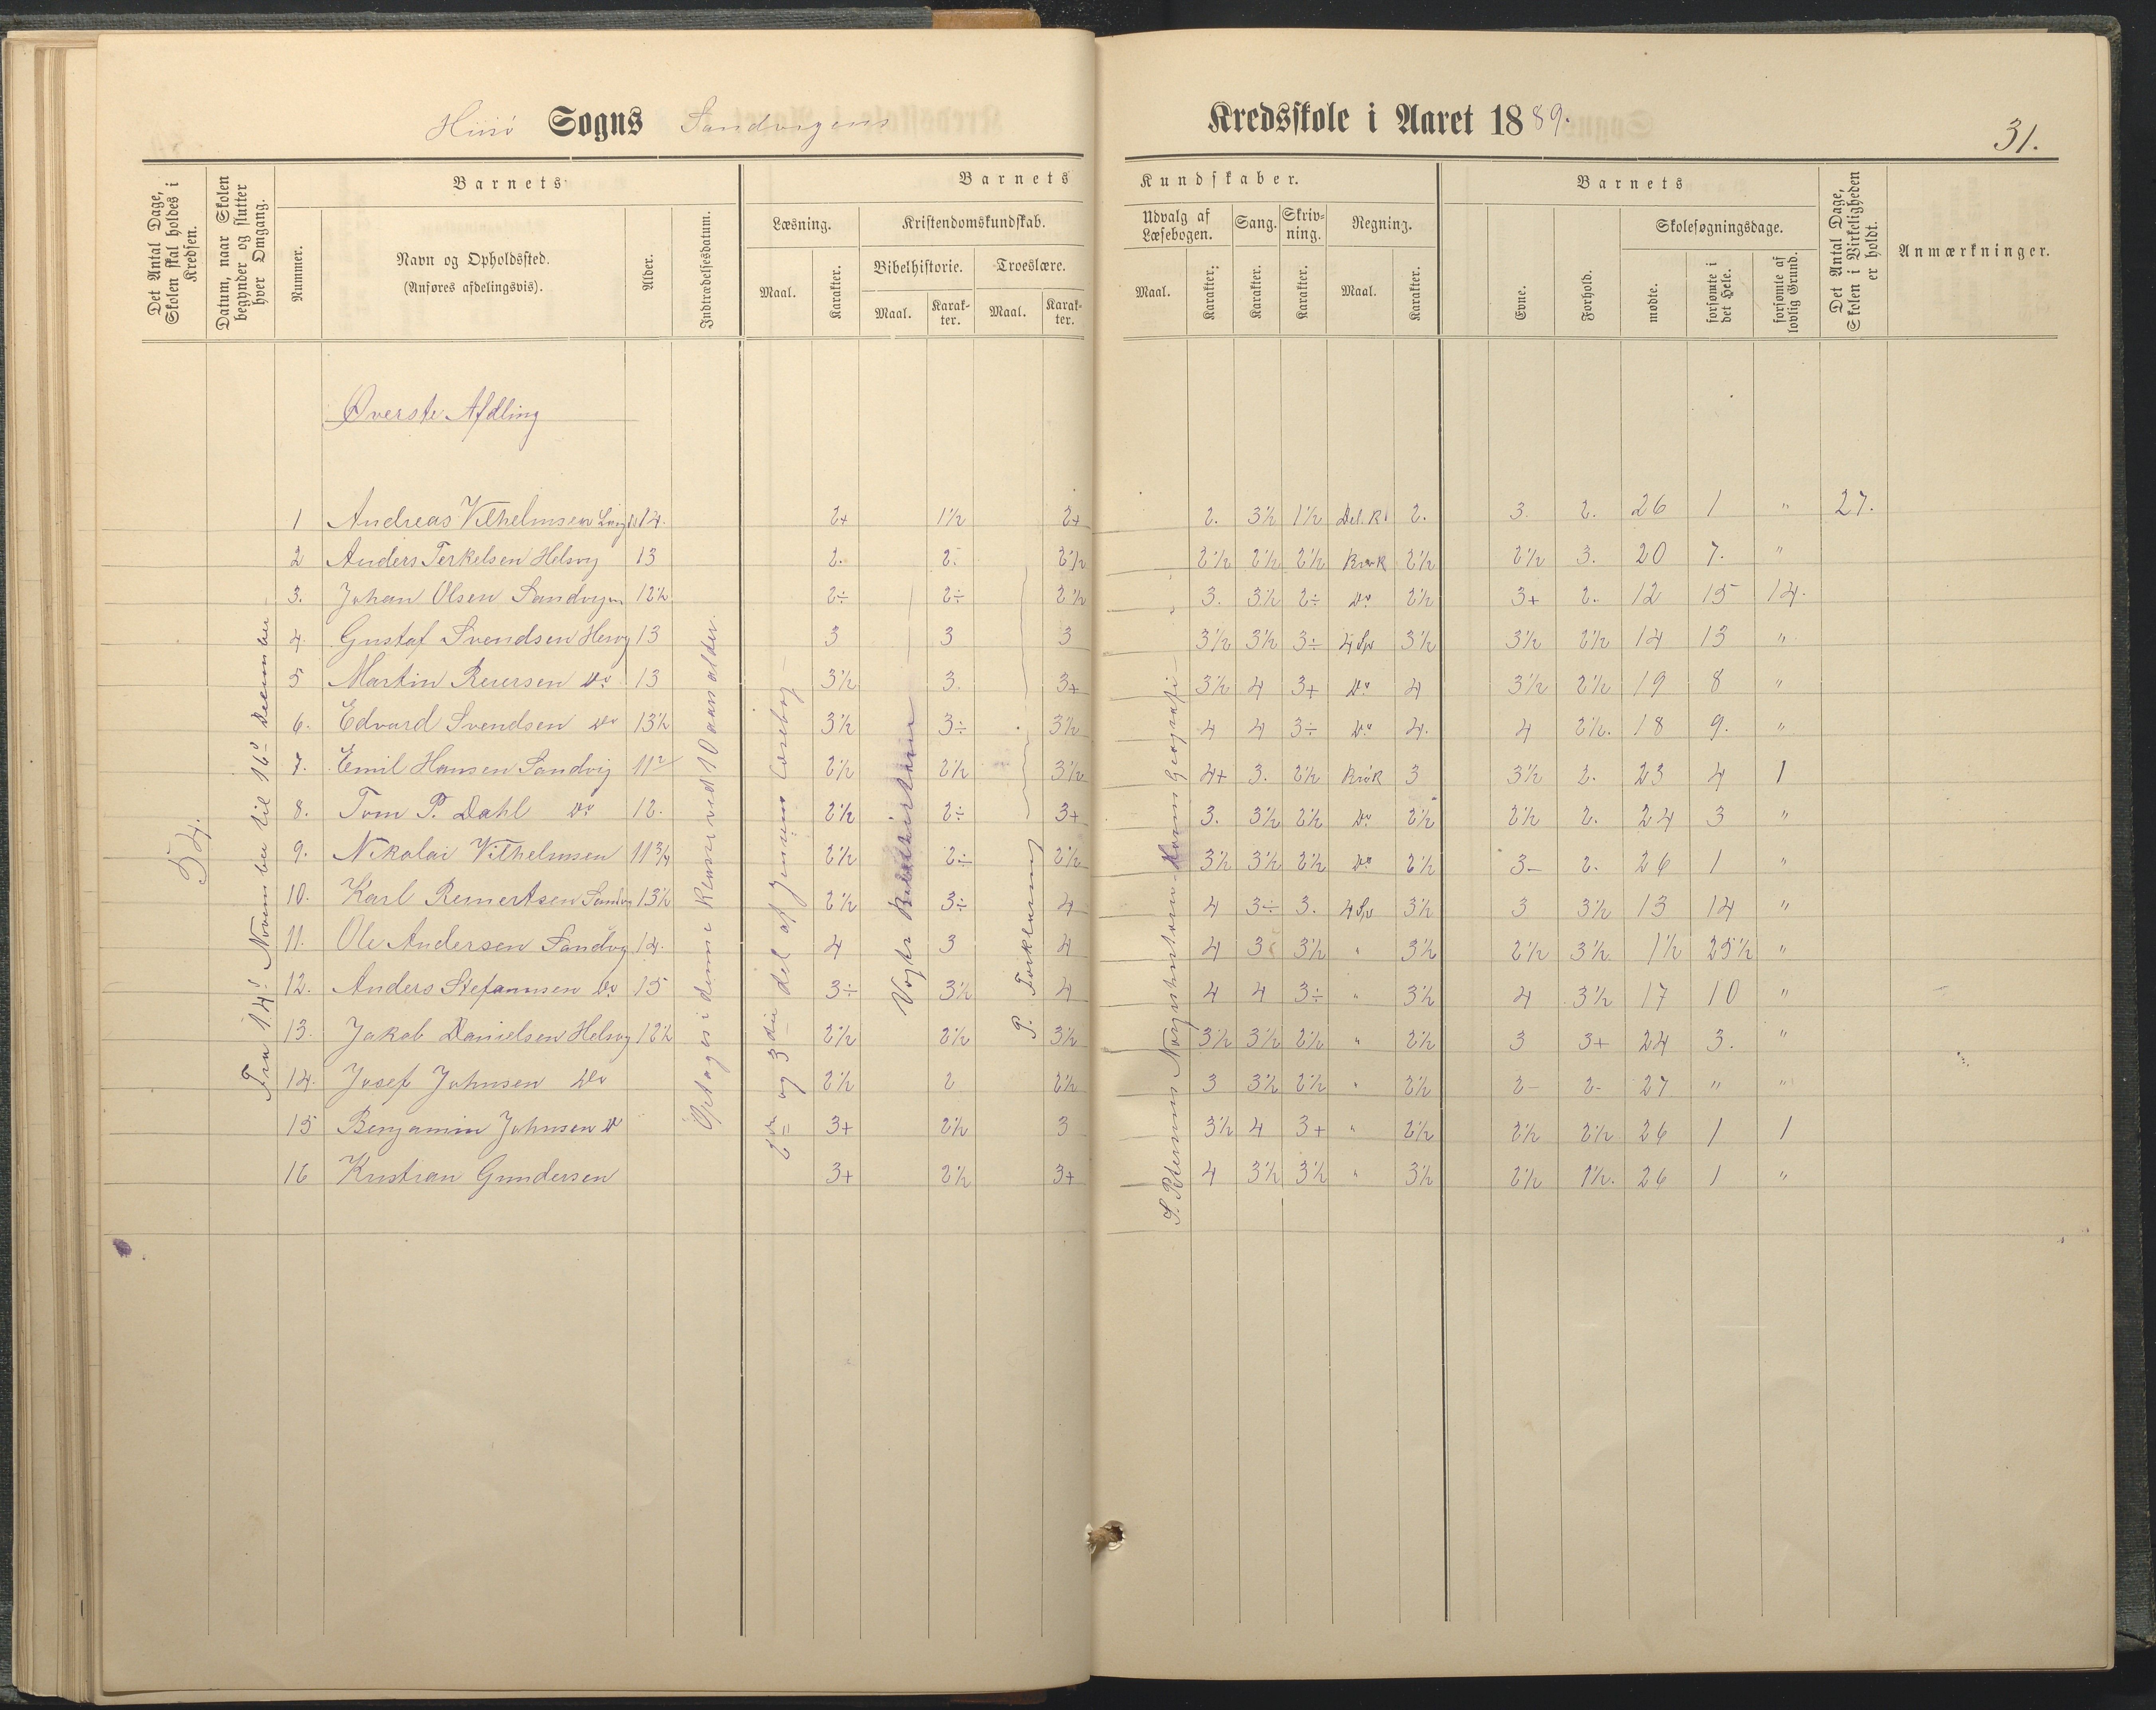 Hisö Sogns Sandvigens Kredsskole i Aaret 1889.
31.
Det Antal Dage, Skolen skal holdes i Kredsen.
Datum, naar Skolen begynder og slutter hver Omgang.
Barnets
Nummer.
Navn og Opholdssted.
(Anføres afdelingsvis).
Alder.
Indtrædelsesdatum.
Barnets Kundskaber.
Læsning.
Maal.
Karakter.
Kristendomskundskab.
Bibelhistorie.
Maal.
Karakter.
Troeslære.
Maal.
Karakter.
Udvalg af Læsebogen.
Maal.
Karakter.
Sang.
Karakter.
Skrivning.
Karakter.
Regning.
Maal.
Karakter.
Barnets
Evne.
Forhold.
Skolesøgningsdage.
mødte.
forsømte i det Hele.
forsømte af lovlig Grund.
Det Antal Dage, Skolen i Virkeligheden er holdt.
Anmærkninger.
Øverste Afdling
54.
Fra 14d November til 16d December
Optages i denne Klasse ved 10 aars alder.
2den og 3die del af Jensens Læsebog
Vogts Bibelhistorie
P. Forklaring
S. Petersens Norgeshistorie Horns Geografi
1 Andreas Vilhelmsen 14. 2+ 1½ 2+ 2. 3½ 1½ Del. R. 2. 3. 2. 26 1 " 27.
2 Anders Terkelsen Helsvg 13 2. 2. 2½ 2½ 2½ 2½ BrøkR 2½ 2½ 3. 20 7. "
3. Johan Olsen Sandvgn 12½ 2÷ 2÷ 2½ 3. 3½ 2÷ Do 2½ 3+ 2. 12 15 14.
4. Gustaf Svendsen 13 3 3 3 3½ 3½ 3÷ 4 Sp 3½ 3½ 2½ 14 13 "
5 Martin Reiersen Do 13 3½ 3. 3+ 3½ 4 3+ Do 4 3½ 2½ 19 8 "
6. Edvard Svendsen Do 13½ 3½ 3÷ 3½ 4 4 3÷ Do 4. 4 2½. 18 9. "
7. Emil Hansen Sandvig 11½ 2½ 2½ 3½ 4+ 3. 2½ BrøkR 3 3½ 2. 23 4 1
8. Tom P. Dahl Do 12. 2½ 2÷ 3+ 3. 3½ 2½ Do 2½ 2½ 2. 24 3 "
9. Nikolai Vilhelmsen 11¾ 2½ 2÷ 2½ 3½ 3½ 2½ Do 2½ 3- 2. 26 1 "
10. Karl Reinertsen Sandvg 13½ 2½ 3÷ 4 4 3÷ 3. 4 Sp 3½ 3 3½ 13 14 "
11. Ole Andersen Sandvg 14. 4 3 4 4 3 3½ " 3½ 2½ 3½ 1½ 25½ "
12. Anders Stefannsen Do 15 3÷ 3½ 4 4 4 3÷ " 3½ 4 3½ 17 10 "
13. Jakob Danielsen Helsvg 12½ 2½ 2½ 3½ 3½ 3½ 2½ " 2½ 3 3+ 24 3. "
14. Josef Johnsen Do 2½ 2 2½ 3 3½ 2½ " 2½ 2- 2- 27 " "
15 Benjamin Johnsen Do 3+ 2½ 3 3½ 4 3+ " 2½ 2½ 2½ 26 1 1
16 Kristian Gundersen 3+ 2½ 3+ 4 3½ 3½ " 3½ 2½ 1½. 26 1 "